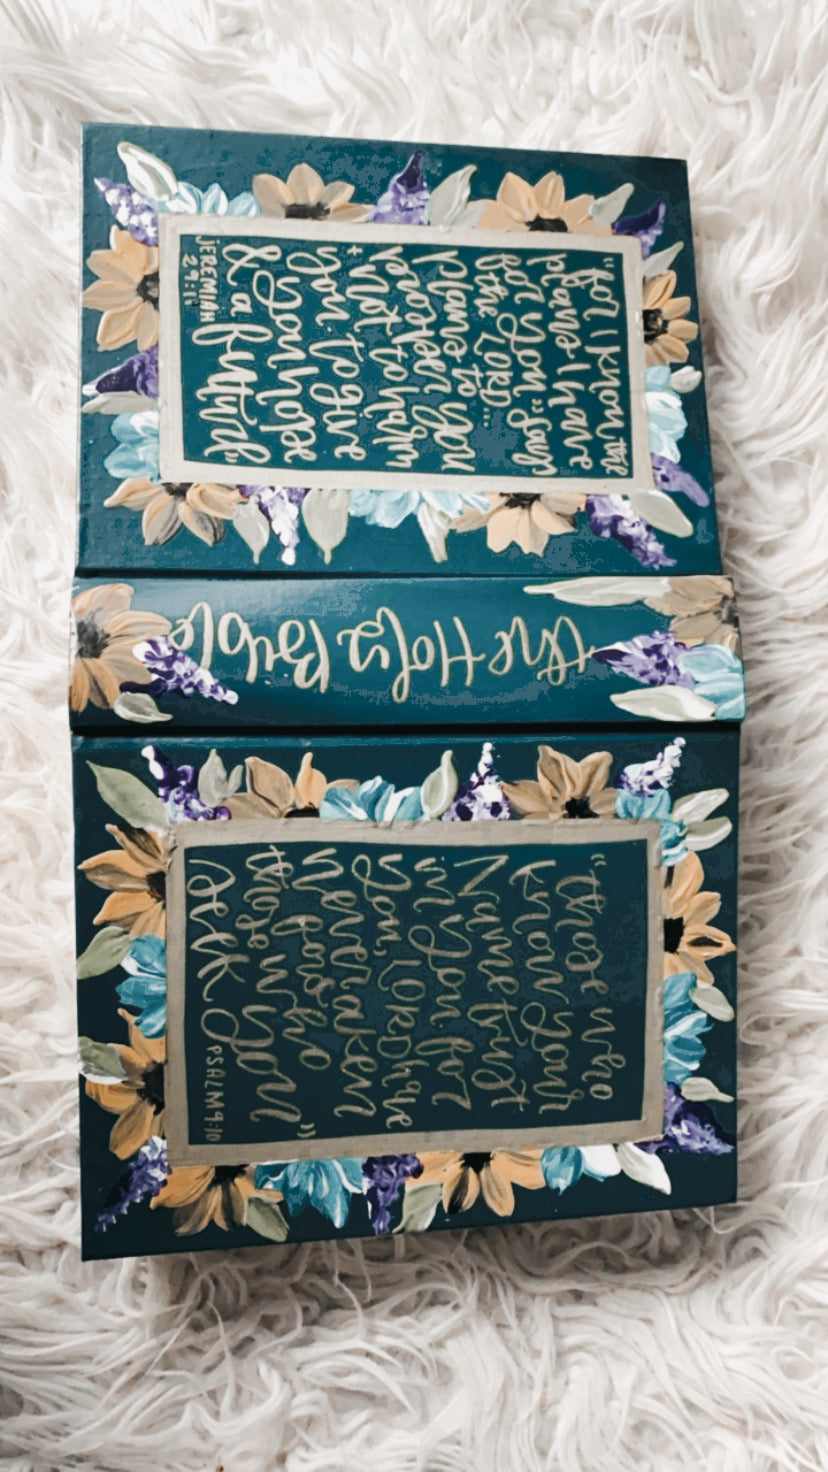 “for i know the
plans i have
for you” says
the LORD...
plans to
prosper you
+ not to harm
you. to give
you hope
& a future”
JEREMIAH
29:11
the Holy Bible
“those who
know your
Name trust
in you for
you, LORD have
never forsaken
those who
seek you”
PSALM 9:10